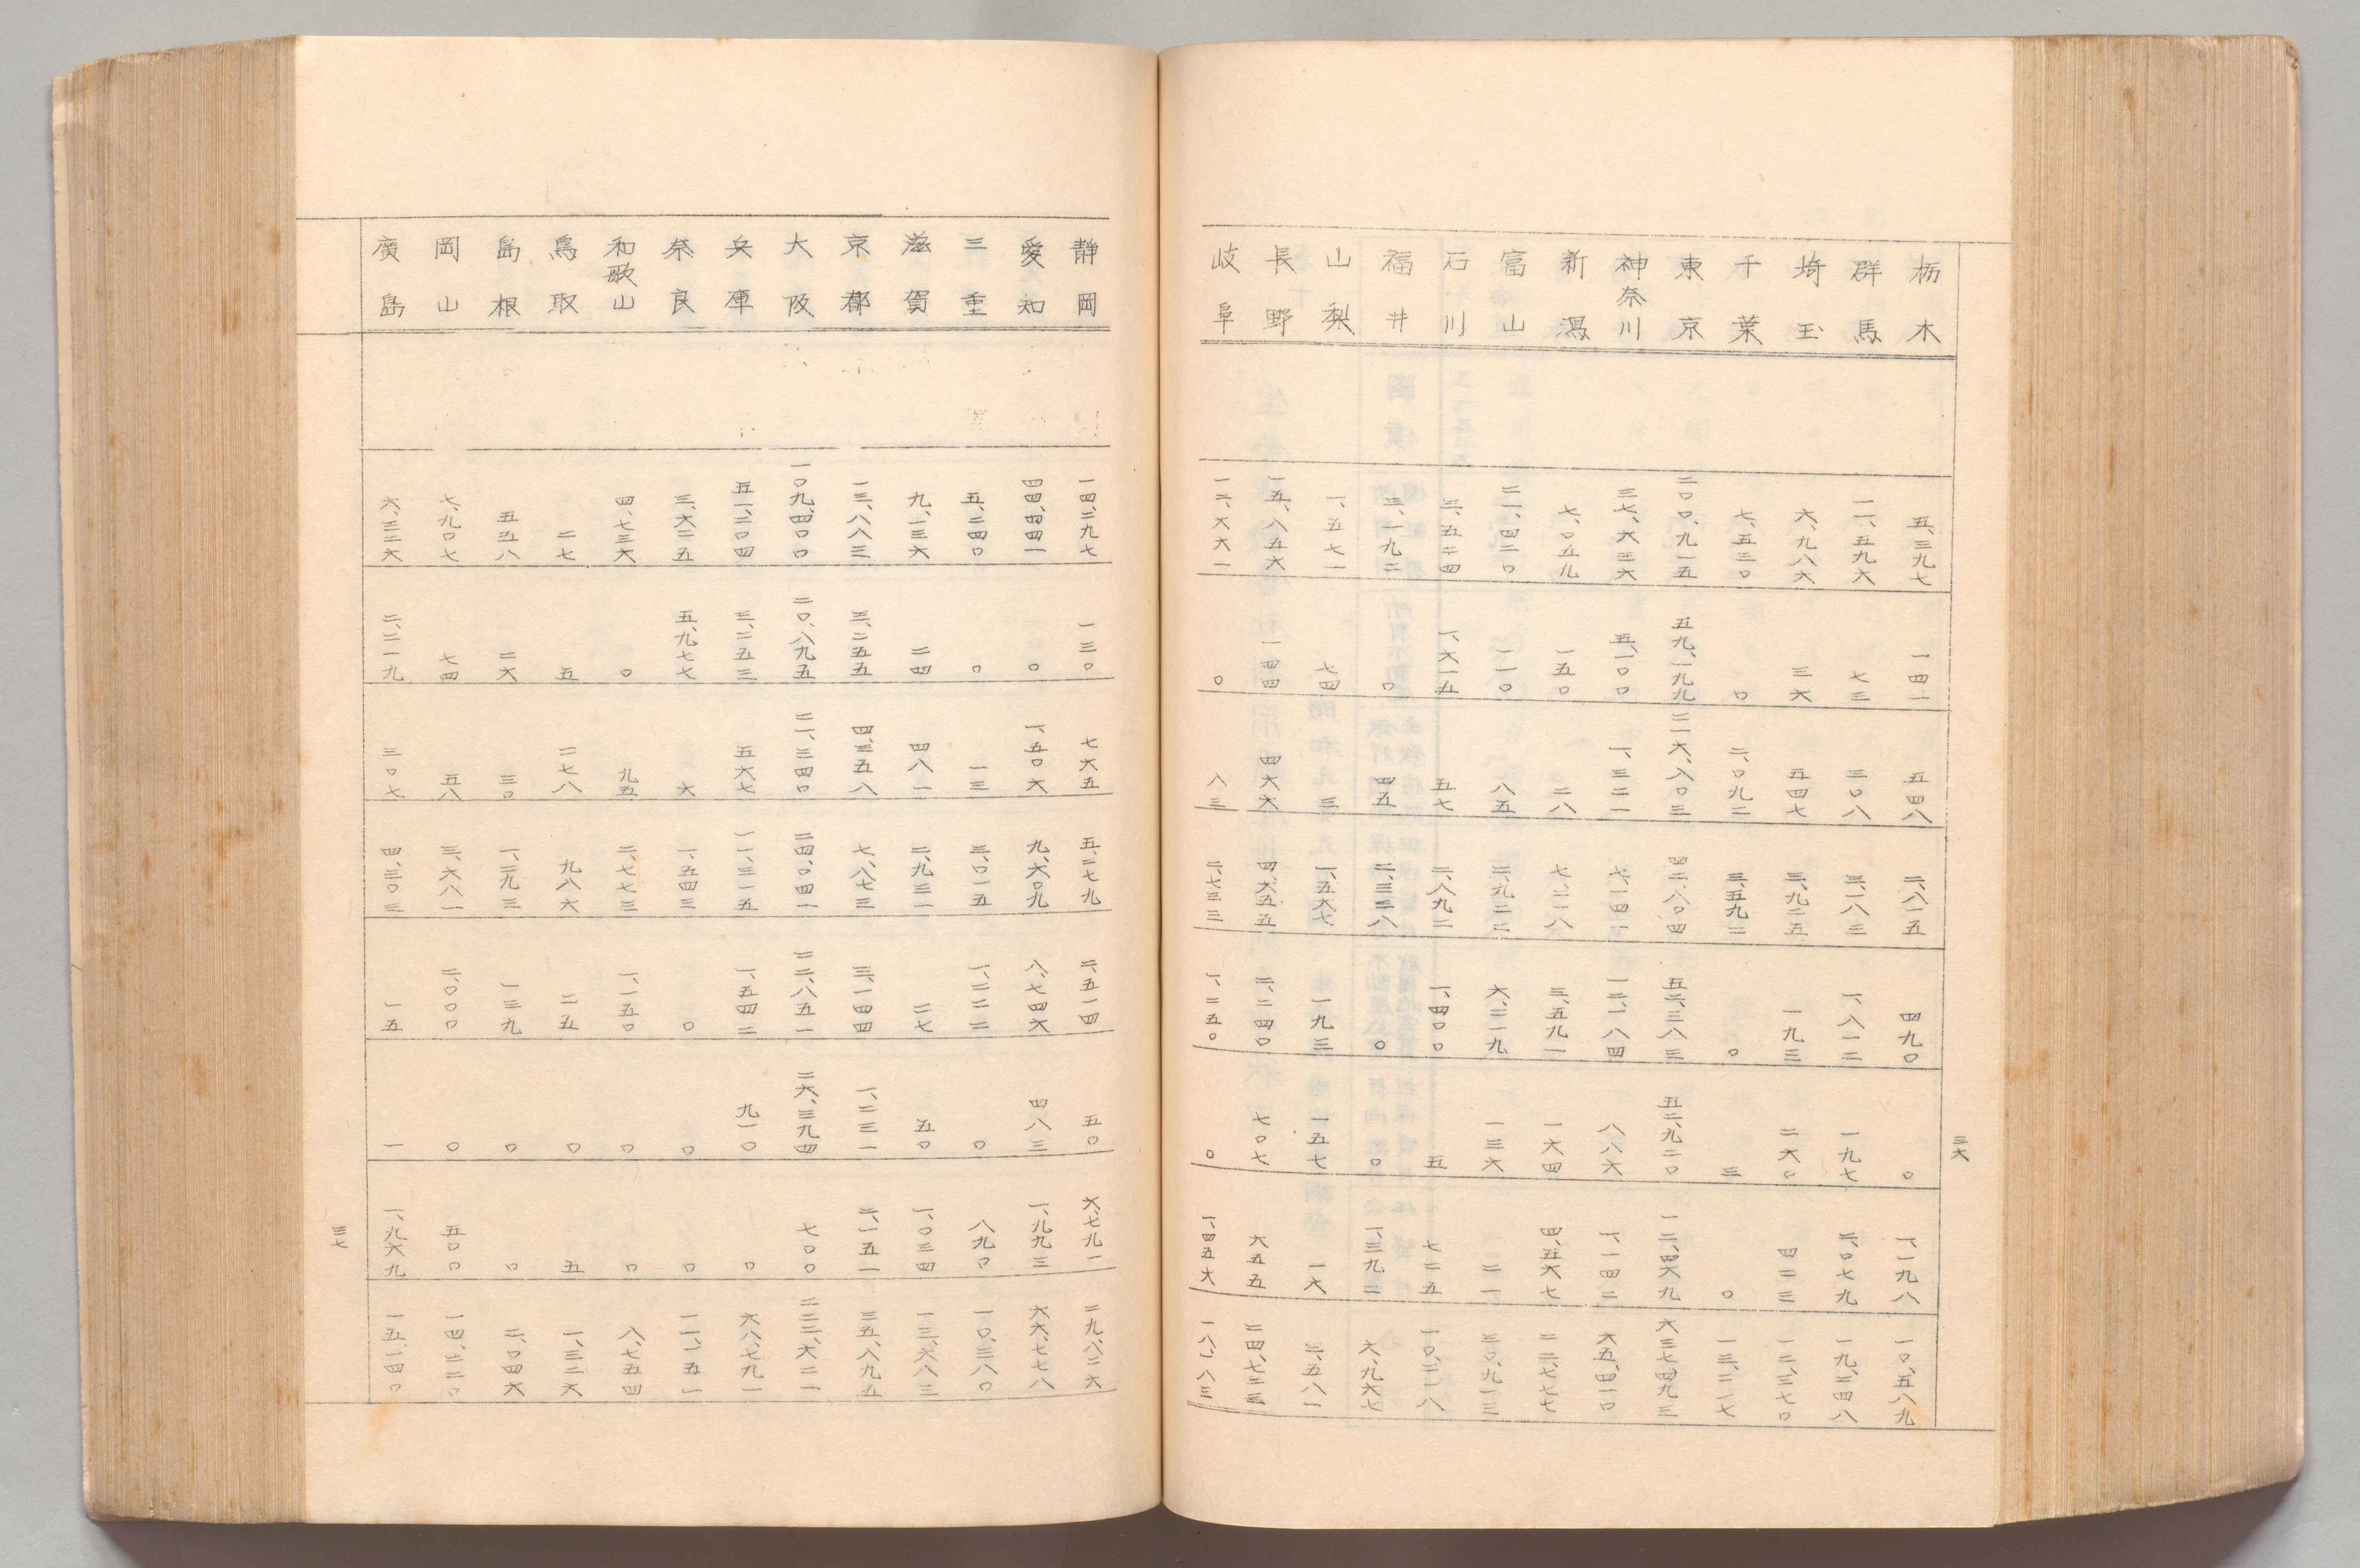 三六
栃木 五、三九七 一四一 五四八 二、八一五 四九〇 〇 一、一九八 一〇、五八九
群馬 一一、五九六 七三 三〇八 三、一八三 一、八一二 一九七 二、〇七九 一九、二四八
埼玉 六、九八六 三六 五四七 三、九二五 一九三 二六〇 四二三 一二、三七〇
千葉 七、五三〇 〇 二、〇九二 三、五九二 〇 三 〇 一三、二一七
東京 二〇〇、九一五 五九、一九九 二一六、八〇三 四二、八〇四 五二、三八三 五二、九二〇 一二、四六九 六三七、四九三
神奈川 三七、六三六 五、一〇〇 一、三二一 七、一四一 一二、一八四 八八六 一、一四二 六五、四一〇
新潟 七、〇五九 一五〇 二八 七、二一八 三、五九一 一六四 四、五六七 二二、七七七
富山 二一、四二〇 一一〇 八五 二、九二二 六、二一九 一三六 二一 三〇、九一三
石川 三、五二四 一、六一五 五七 二、八九二 一、四〇〇 五 七二五 一〇、二一八
福井 三、一九二 〇 四五 二、三三八 〇 〇 一、三九二 六、九六七
山梨 一、五七一 七四 三 一、五六七 一九三 一五七 一六 三、五八一
長野 一五、八五六 一四四 四六六 四、六五五 二、二四〇 七〇七 六五五 二四、七二三
岐阜 一二、六六一 〇 八三 二、七三三 一、二五〇 〇 一、四五六 一八、一八三
静岡 一四、二九七 一三〇 七六五 五、二七九 二、五一四 五〇 六、七九一 二九、八二六
愛知 四四、四四一 〇 一、五〇六 九、六〇九 八、七四六 四八三 一、九九三 六六、七七八
三重 五、二四〇 〇 一三 三、〇一五 一、二二二 〇 八九〇 一〇、三八〇
滋賀 九、一三六 二四 四八一 二、九三一 二七 五〇 一、〇三四 一三、六八三
京都 一三、八八三 三、二五五 四、三五八 七、八七三 三、一四四 一、二三一 二、一五一 三五、八九五
大阪 一〇九、四〇〇 二〇、八九五 二一、三四〇 二四、〇四一 二二、八五一 二六、三九四 七〇〇 二二二、六二一
兵庫 五一、二〇四 三、二五三 五六七 一一、三一五 一、五四二 九一〇 〇 六八、七九一
奈良 三、六二五 五、九七七 六 一、五四三 〇 〇 〇 一一、一五一
和歌山 四、七三六 〇 九五 二、七七三 一、一五〇 〇 〇 八、七五四
鳥取 二七 五 二七八 九八六 二五 〇 五 一、三二六
島根 五五八 二六 三〇 一、二九三 一三九 〇 〇 二、〇四六
岡山 七、九〇七 七四 五八 三、六八一 二、〇〇〇 〇 五〇〇 一四、二二〇
廣島 六、三二六 二、二一九 三〇七 四、三〇三 一五 一 一、九六九 一五、一四〇
三七